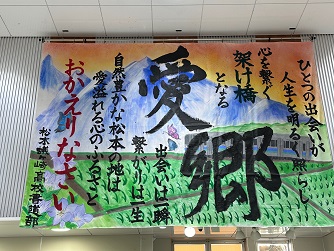 ひとつの出会いが
人生を明るく照らし
心を繋ぐ
架け橋
となる
愛郷
出会いは一瞬
繋がりは一生
自然豊かな松本の地は
愛溢れる心のふるさと
おかえりなさい
松本蟻ヶ崎高校書道部